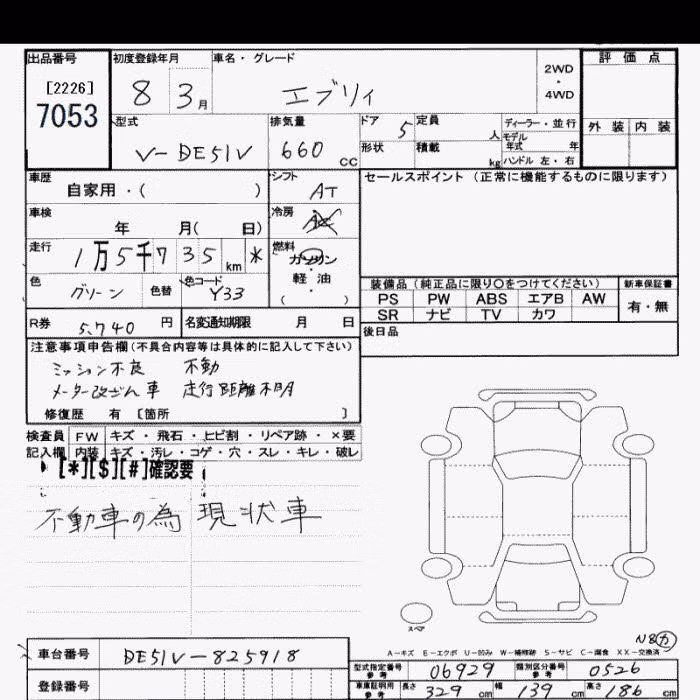 出品番号 初度登録年月 車名・グレード 評価点
[2226] 8 3月 エブリィ 2WD・4WD
7053
型式 排気量 ドア 5 定員 人 ディーラー・並行 外装 内装
V-DE51V 660 CC 形状 積載 kg モデル年式 年 ハンドル 左・右
車歴 自家用・( ) シフト AT セールスポイント(正常に機能するものに限ります)
車検 年 月( 日) 冷房 AC
走行 1万5千735 km * 燃料 ガソリン・軽油・( )
色 グリーン 色替 色コード Y33 装備品(純正品に限り○をつけてください) 新車保証書
PS PW ABS エアB AW 有・無
SR ナビ TV カワ
R券 5,740 円 名変通知期限 月 日 後日品
注意事項申告欄(不具合内容等は具体的に記入して下さい)
ミッション不良 不動
メーター改ざん車 走行距離不明
修復歴 有 [箇所 ]
検査員 FW キズ・飛石・ヒビ割・リペア跡・×要
記入欄 内装 キズ・汚レ・コゲ・穴・スレ・キレ・破レ
[*][$][#]確認要
不動車の為 現状車
スペア
N8カ
A-キズ E-エクボ U-凹み W-補修跡 S-サビ C-腐食 XX-交換済
車台番号 DE51V-825918 型式指定番号 参考 06929 類別区分番号 参考 0526
登録番号 車庫証明用 参考 長さ 329 cm 幅 139 cm 高さ 186 cm